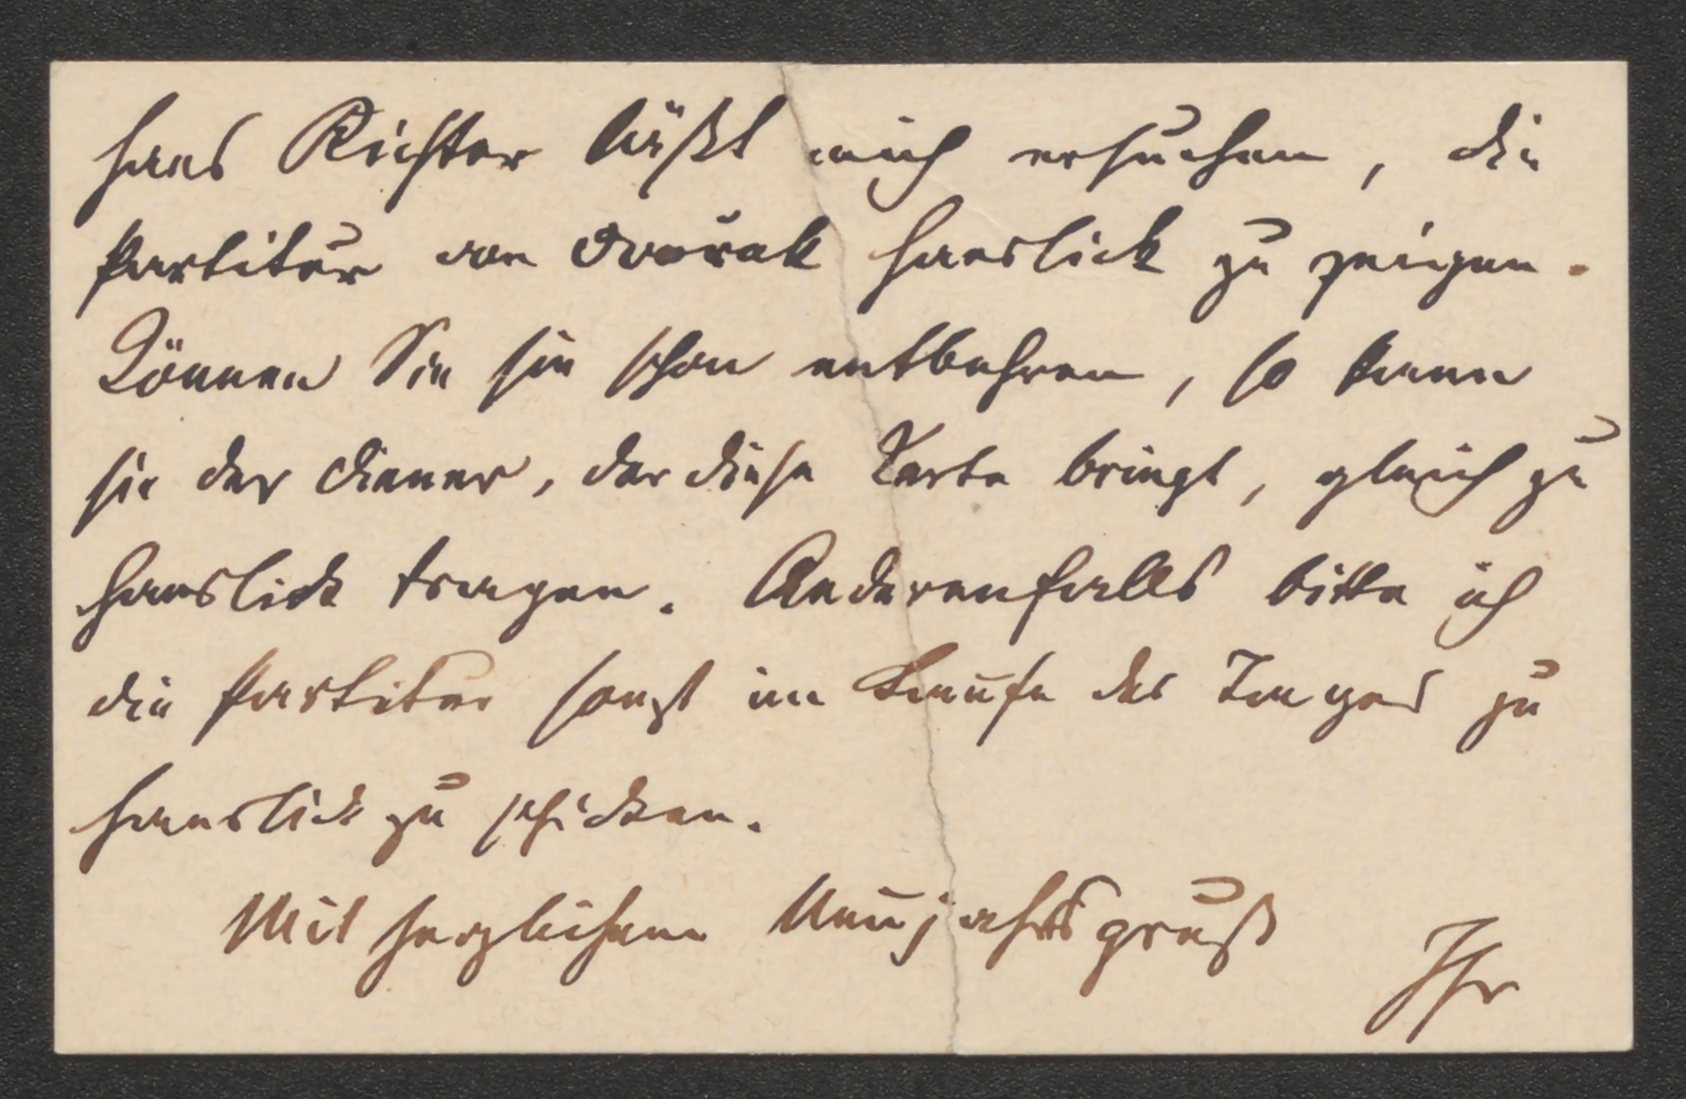 Hans Richter läßt mich ersuchen, die
Partitur von Dvořak Hanslick zu zeigen.
Können Sie sie schon entbehren, so kann
sie der Diener, der diese Karte bringt, gleich zu
Hanslick tragen. Anderenfalls bitte ich
die Partitur sonst im Laufe des Tages zu
Hanslick zu schicken.
Mit herzlichem Neujahrsgruß
Ihr